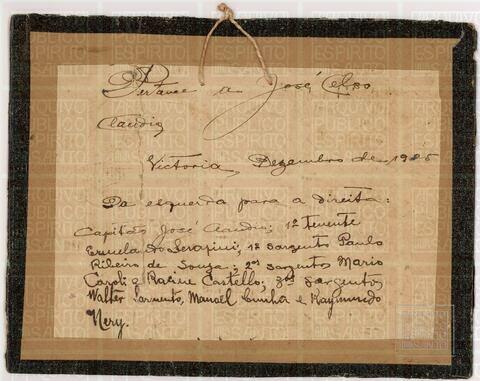 Pertence a José Celso
Claudio
Victoria, Dezembro de 1925
Da esquerda para a direita:
Capitão José Claudio; 1º tenente
Serapini; 1º sargento Paulo
Ribeiro de Souza; 2ºs sargentos Mario
Caroli e Racine Castello; 3ºs sargentos
Walter Sarmento, Manoel Cunha e Raymundo
Nery.